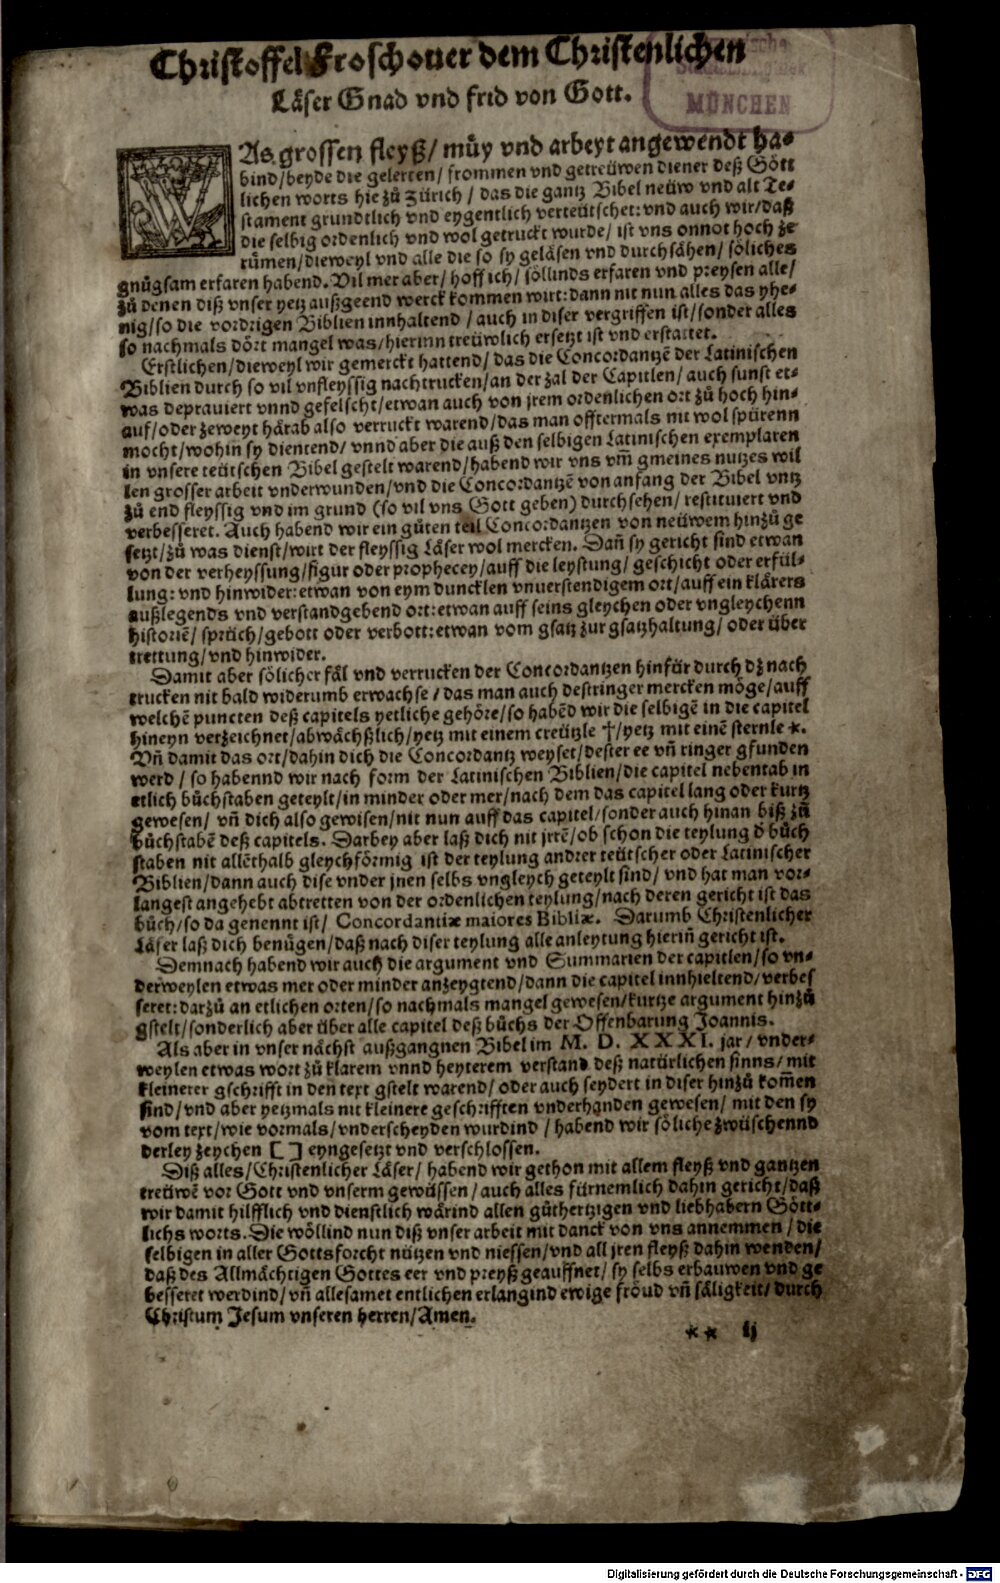 Christoffel Froschouer dem Christenlichen
Läser Gnad vnd frid von Gott.
MÜNCHEN
WAs grossen fleyß/ müy vnd arbeyt angewendt ha-
bind/beyde die gelerten/ frommen vnd getreüwen diener deß Gött
lichen worts hie zů Zürich / das die gantz Bibel neüw vnd alt Te-
stament grundtlich vnd eygentlich verteütschet: vnd auch wir/daß
die selbig ordenlich vnd wol getruckt wurde/ ist vns onnot hoch ze
rümen/dieweyl vnd alle die so sy geläsen vnd durchsähen/ söliches
gnůgsam erfaren habend. Vil mer aber/ hoff ich/ söllinds erfaren vnd preysen alle/
zů denen diß vnser yetz außgeend werck kommen wirt: dann nit nun alles das yhe-
nig/so die vordrigen Biblien innhaltend / auch in diser vergriffen ist/sonder alles
so nachmals dört mangel was/hierinn treüwlich ersetzt ist vnd erstattet.
Erstlichen/dieweyl wir gemerckt hattend/ das die Concordantzē der Latinischen
Biblien durch so vil vnfleyssig nachtrucken/an der zal der Capitlen/ auch sunst et-
was depraviert vnnd gefelscht/etwan auch von jrem ordenlichen ort zů hoch hin-
auf/oder zeweyt härab also verruckt warend/das man offtermals nit wol spürenn
mocht/wohin sy dientend/ vnnd aber die auß den selbigen Latinischen exemplaren
in vnsere teütschen Bibel gestelt warend/habend wir vns vm̄ gmeines nutzes wil
len grosser arbeit vnderwunden/vnd die Concordantzē von anfang der Bibel vntz
zů end fleyssig vnd im grund (so vil vns Gott geben) durchsehen/ restituiert vnd
verbesseret. Auch habend wir ein gůten teil Concordantzen von neüwem hinzů ge
setzt/zů was dienst/wirt der fleyssig Läser wol mercken. Dañ sy gericht sind etwan
von der verheyssung/figur oder prophecey/auff die leystung/ geschicht oder erfül-
lung: vnd hinwider: etwan von eym duncklen vnuerstendigem ort/auff ein klärers
außlegends vnd verstandgebend ort: etwan auff seins gleychen oder vngleychenn
historiē/ sprüch/gebott oder verbott: etwan vom gsatz zur gsatzhaltung/ oder über
trettung/vnd hinwider.
Damit aber sölicher fäl vnd verrucken der Concordantzen hinfür durch dz nach
trucken nit bald widerumb erwachse/ das man auch destringer mercken möge/auff
welchē puncten deß capitels yetliche gehöre/so habēd wir die selbigē in die capitel
hineyn verzeichnet/abwächßlich/yetz mit einem creützle †/yetz mit einē sternle *.
Vñ damit das ort/dahin dich die Concordantz weyset/dester ee vñ ringer gfunden
werd / so habennd wir nach form der Latinischen Biblien/die capitel nebentab in
etlich bůchstaben geteylt/in minder oder mer/nach dem das capitel lang oder kurtz
gewesen/ vñ dich also gewisen/nit nun auff das capitel/sonder auch hinan biß zū
bůchstabē deß capitels. Darbey aber laß dich nit jrrē/ob schon die teylung ď bůch
staben nit allēthalb gleychförmig ist der teylung andrer teütscher oder Latinischer
Biblien/dann auch dise vnder jnen selbs vngleych geteylt sind/ vnd hat man vor-
langest angehebt abtretten von der ordenlichen teylung/nach deren gericht ist das
bůch/so da genennt ist/ Concordantiæ maiores Bibliæ. Darumb Christenlicher
Läser laß dich benügen/daß nach diser teylung alle anleytung hieriñ gericht ist.
Demnach habend wir auch die argument vnd Summarien der capitlen/so vn-
derweylen etwas mer oder minder anzeygtend/dann die capitel innhieltend/verbes
seret: darzů an etlichen orten/so nachmals mangel gewesen/kurtze argument hinzů
gstelt/sonderlich aber über alle capitel deß bůchs der Offenbarung Joannis.
Als aber in vnser nächst außgangnen Bibel im M. D. XXXI. jar/ vnder-
weylen etwas wort zů klarem vnnd heyterem verstand deß natürlichen sinns/ mit
kleinerer gschrifft in den text gstelt warend/ oder auch seydert in diser hinzů kom̄en
sind/vnd aber yetzmals nit kleinere geschrifften vnderhanden gewesen/ mit den sy
vom text/wie vormals/vnderscheyden wurdind / habend wir söliche zwüschennd
derley zeychen [ ] eyngesetzt vnd verschlossen.
Diß alles/Christenlicher Läser/ habend wir gethon mit allem fleyß vnd gantzen
treüwē vor Gott vnd vnserm gewüssen/ auch alles fürnemlich dahin gericht/daß
wir damit hilfflich vnd dienstlich wärind allen gůthertzigen vnd liebhabern Gött-
lichs worts. Die wöllind nun diß vnser arbeit mit danck von vns annemmen / die
selbigen in aller Gottsforcht nützen vnd niessen/vnd all jren fleyß dahin wenden/
daß des Allmächtigen Gottes eer vnd preyß geauffnet/ sy selbs erbauwen vnd ge
besseret werdind/ vñ allesamet entlichen erlangind ewige fröud vñ säligkeit/ durch
Christum Jesum vnseren herren/Amen.
** ij
Digitalisierung gefördert durch die Deutsche Forschungsgemeinschaft - DFG